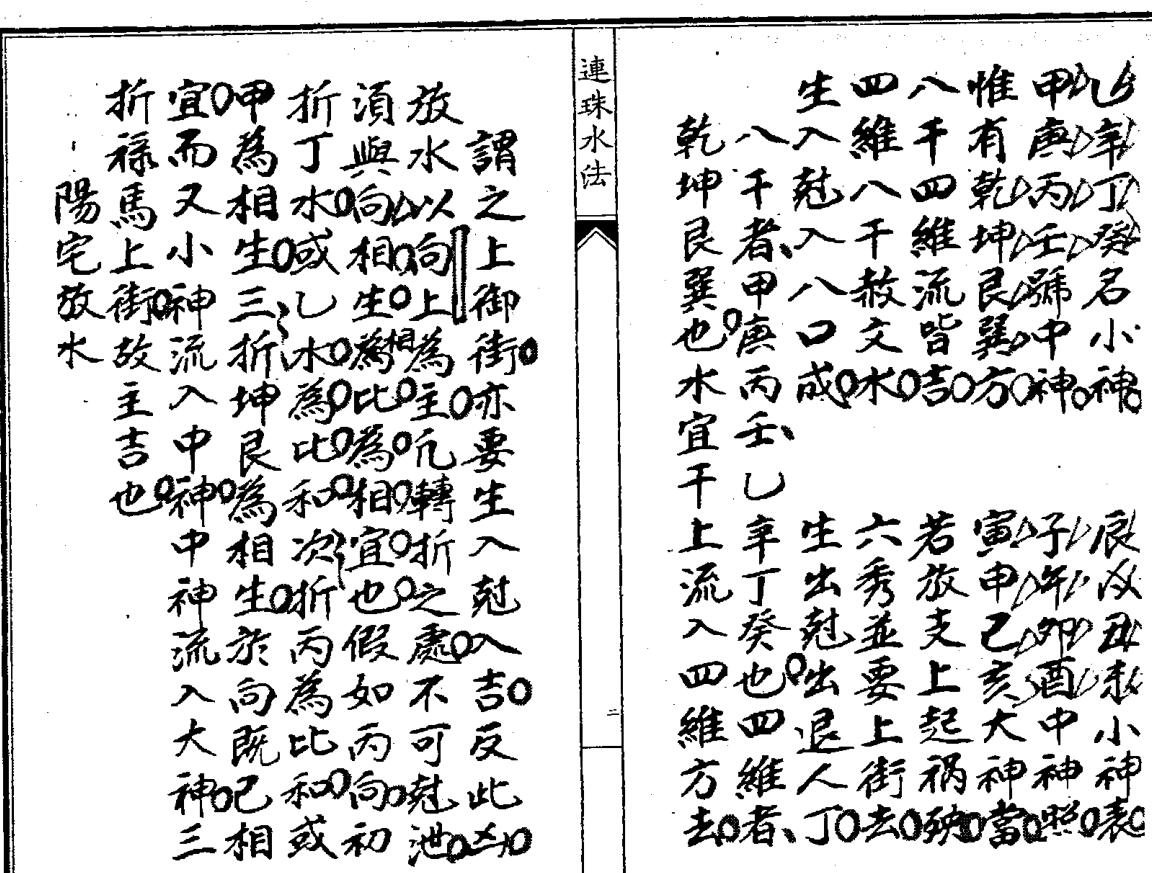 乙辛丁癸名小神　辰戌丑未小神表
甲庚丙壬號中神　子午卯酉中神照
惟有乾坤艮巽方　寅申己亥大神當
八干四維流皆吉　若放支上起禍殃
四維八干赦文水　六秀並要上街去
生入尅入八口成　生出尅出退人丁
八干者、甲庚丙壬、乙辛丁癸也四維者、
乾坤艮巽也水宜干上流入四維方去
連珠水法
二
謂之上御街亦要生入尅入吉反此凶
放水以向上為主凢轉折之處不可尅泄
須與向相生為相比為相宜也假如丙向初
折丁水或乙水為比和次折丙為比和或
甲為相生三折坤艮為相生於向既已相
宜而又小神流入中神中神流入大神三
折祿馬上街故主吉也
陽宅放水